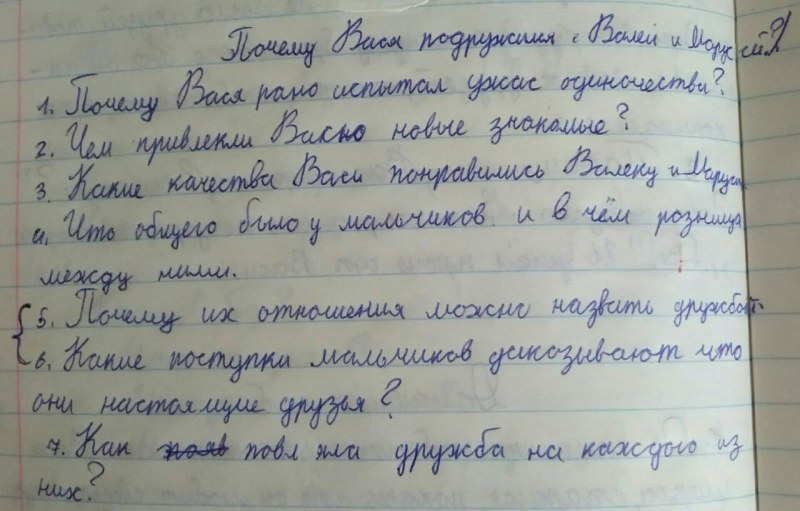 Почему Вася подружился с Валей и Марусей?
1. Почему Вася рано испытал ужас одиночества?
2. Чем привлекли Васю новые знакомые?
3. Какие качества Васи понравились Валеку и Марусе
4. Что общего было у мальчиков и в чём розница
между ними.
5. Почему их отношения можно назвать дружбой.
6. Какие поступки мальчиков доказывают что
они настоящие друзья?
7. Как повлияла дружба на каждого из
них?